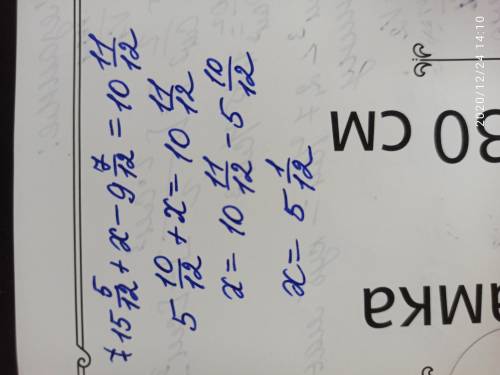 7 15 5/12 + x − 9 7/12 = 10 11/12
5 10/12 + x = 10 11/12
x = 10 11/12 − 5 10/12
x = 5 1/12
амка
30 см
2020/12/24 14:10